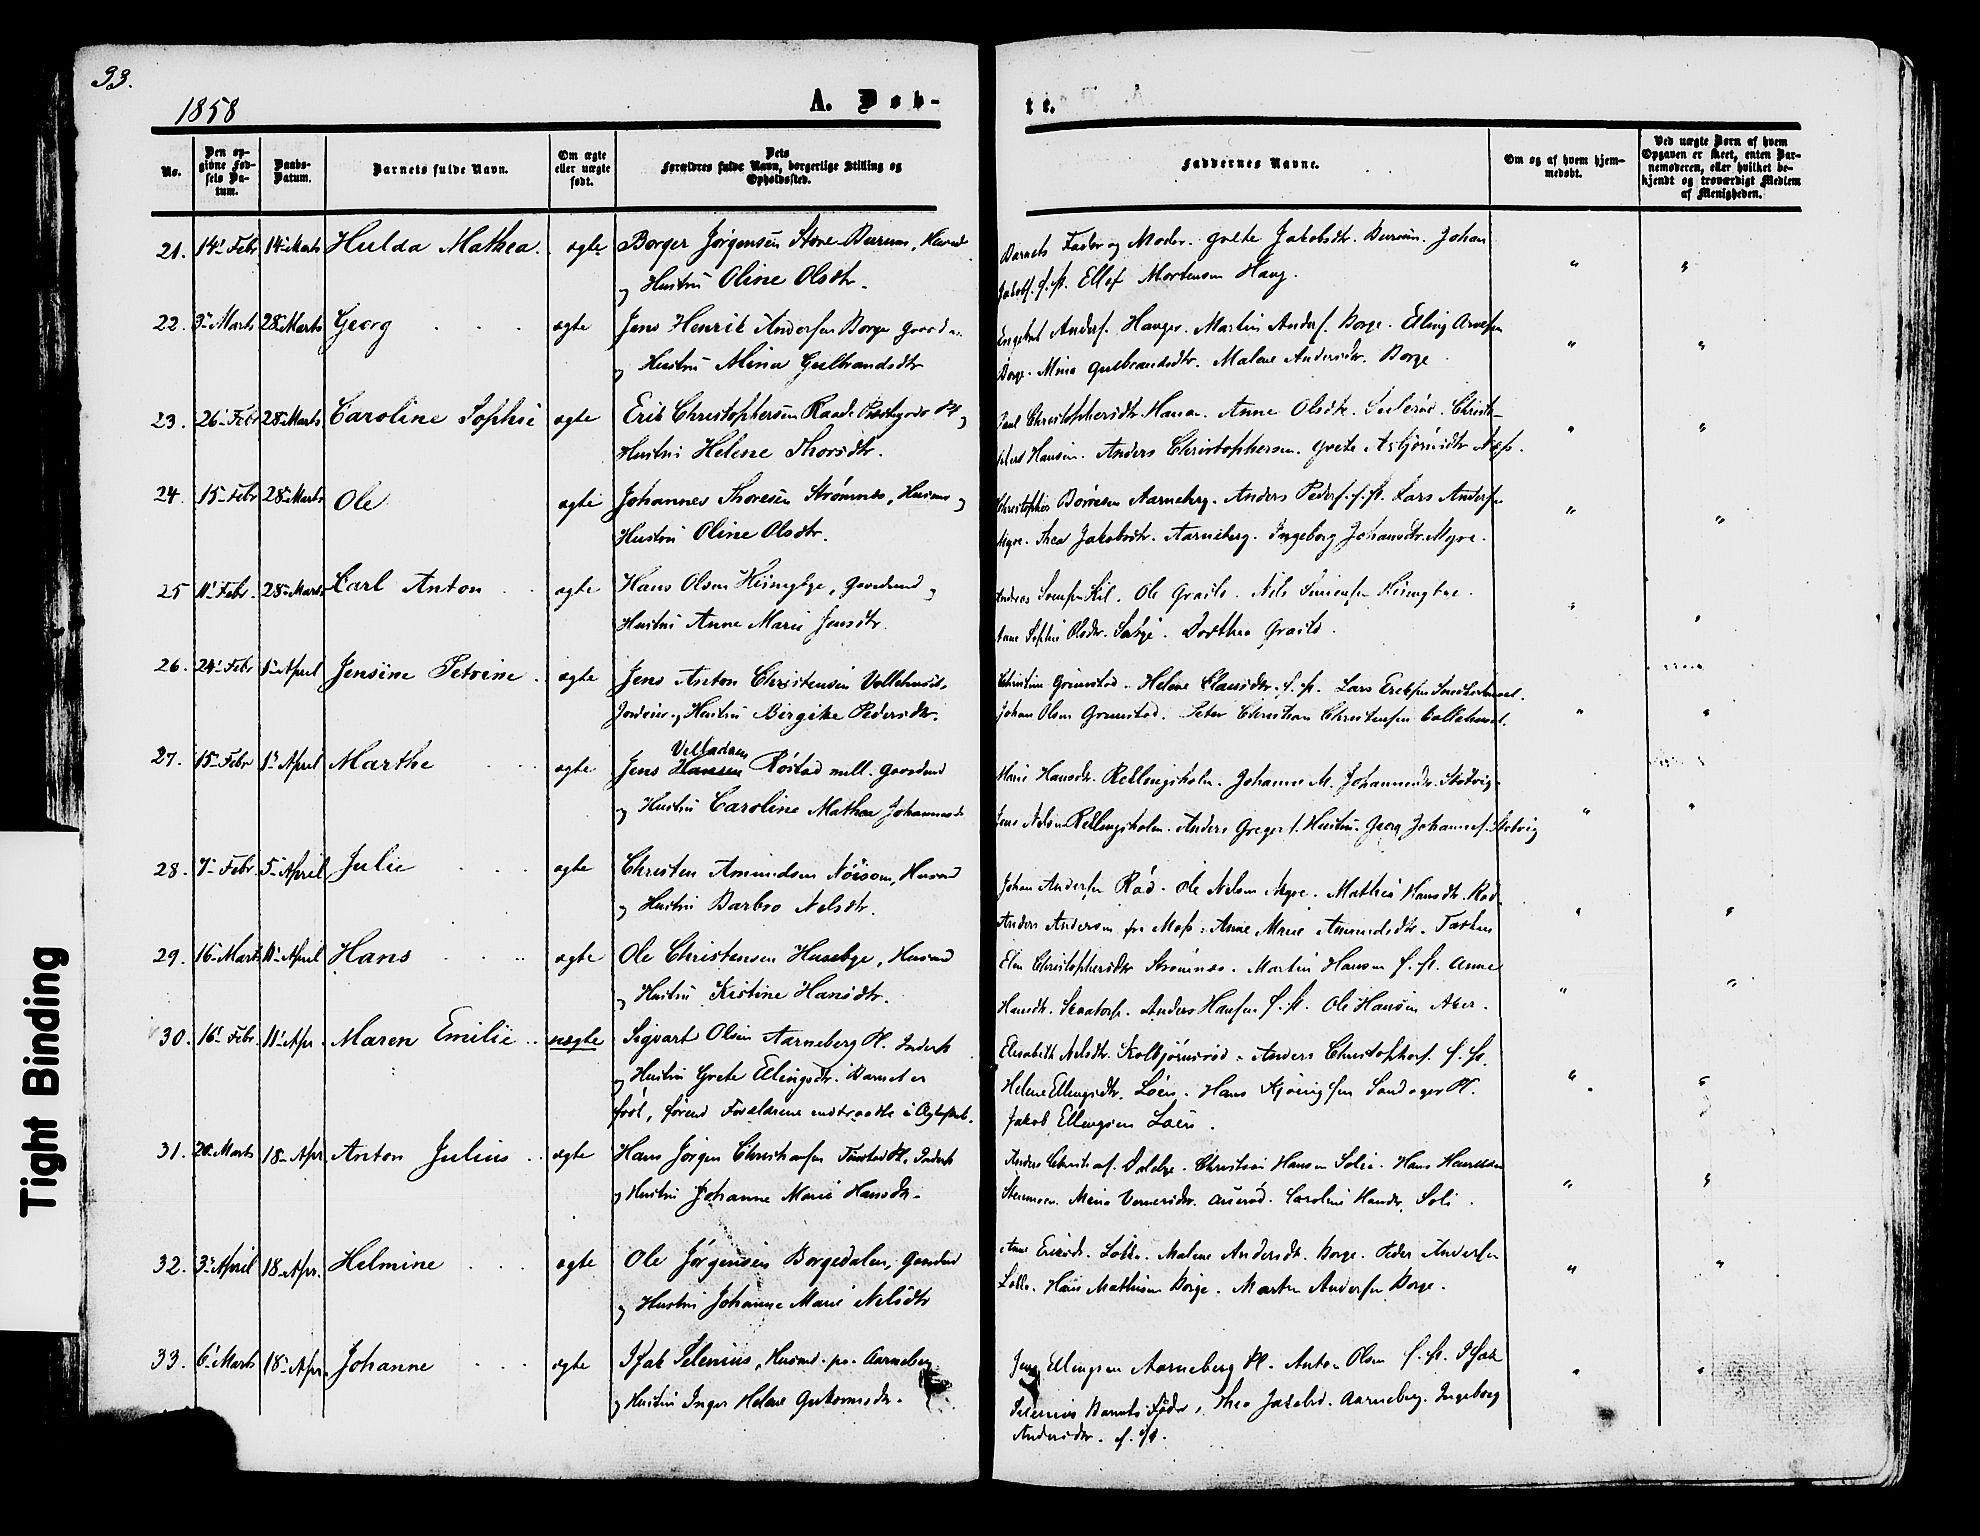 33.
1858
A. Døb-
te.
No.
Den op-
givne Fød-
sels Da-
tum.
Daabs-
Datum.
Barnets fulde Navn.
Om ægte
eller uægte
født.
Dets
Forældres fulde Navn, borgerlige Stilling og
Opholdssted.
Faddernes Navne.
Om og af hvem hjem-
medøbt.
Ved uægte Børn af hvem
Opgaven er skeet, enten Bar-
nemoderen, eller hvilket be-
kjendt og troværdigt Medlem
af Menigheden.
21. 14 Febr 14 Marts Hulda Mathea. ægte Borger Jørgensen Støre Burum, Husmd
og Hustru Oline Olsdtr.
Barnets Fader og Moder. Grete Jakobsdtr. Burum. Johan
Jakobs. s. st. Ellef Mortensen Haug.
22. 3 Marts 28 Marts Georg ægte Jens Henrik Andersen Borge
og Hustru Mina Gulbrandsdtr
Engebret Anders. Hauger. Martin Anders. Borge. Elling Arnesen
Borge. Mina Gulbrandsdtr. Malene Andersdtr. Borge.
23. 26 Febr 28 Marts Caroline Sophie ægte Erik Christophersen Raade Præstegaard Pl og
Hustru Helene Thorsdtr.
Christophersdtr. Anne Olsdtr. Christo-
Hansen. Anders Christophersen. Grete Asbjørnsdtr Næs.
24. 15 Febr 28 Marts Ole ægte Johannes Thoresen Strømnes, Husmd og
Hustru Oline Olsdtr.
Christopher Børresen Aarneberg. Anders Peders. s. st. Lars Andersen
Myre. Thea Jakobsdtr. Aarneberg. Ingeborg Johansdtr. Myre.
25 11 Febr. 28 Marts Carl Anton ægte Hans Olsen Kiingbye, Gaardmd og
Hustru Anne Marie Jensdtr.
Andreas Svensen Kil. Ole Grails. Nils Simensen Kiingbye.
Anne Sophie Olsdtr. Sæbye. Dorthea Grails.
26. 24 Febr 1 April Jensine Petrine ægte Jens Anton Christensen
Jordeier og Hustru Birgitte Pedersdtr.
Christine Grimstad. Helene Clausdtr. s. st. Lars Eriksen
Johan Olsen Grimstad. Peter Christian Christensen
27. 15 Febr 1 April Marthe ægte Jens Hansen Røstad mell. Gaardmd
og Hustru Caroline Mathea Johannesd
Marie Hansdtr. Rellingsholm. Johanne M. Johannesdtr. Skotvig
Jens Nelsen Rellingsholm. Anders Gregers. Hustru. Georg Johannes. Skotvig
28. 7 Febr. 5 April Julie ægte Christen Amundsen Nøisom, Husmd
og Hustru Barbro Nelsdtr.
Johan Andersen Rød. Ole Nelsen Myre. Mathea Hansdtr. Rød
Anders Andersen fra Moss. Anne Marie Amundsdtr.
29. 16 Marts 11 April Hans ægte Ole Christensen Husebye, Husmd
og Hustru Kistine Hansdtr.
Elen Christophersdtr Strømnes. Martin Hansen s. st. Anne
Hansdtr. Skaatorp. Anders Hansen s. st. Ole Hansen Aker.
30. 16 Febr. 11 Apr. Maren Emilie uægte Sigvart Olsen Aarneberg Pl. Inderst
og Hustru Grete Ellingsdtr. Barnet er
født, førend Forældrene indtraadte i Ægteskab.
Elisabeth Nelsdtr. Kolbjørnsrød. Anders Christophers. s. st.
Helene Ellingsdtr. Løen. Hans
Jakob Ellingsen Løen.
31. 20 Marts 18 Apr. Anton Julius ægte Hans Jørgen Christiansen Pl. Inderst
og Hustru Johanne Marie Hansdtr.
Anders Christians. Christian Hansen Solie. Hans
Caroline Hansdtr. Soli.
32. 3 April 18 Apr. Helmine ægte Ole Jørgensen Borgedalen, Gaardmd
og Hustru Johanne Marie Nelsdtr
Anne Eriksdtr. Løkke. Malene Andersdtr. Borge. Peder Andersen
Løkke. Hans Mathisen Borge. Martin Andersen Borge.
33. 6 Marts 18 Apr. Johanne ægte Isak Selenius, Husmd. pa Aarneberg
og Hustru Inger Helene Guttormsdtr.
Jens Ellingsen Aarneberg Pl. Anton Olsen s. st. Isak
Selenius Barnets Fader, Thea Jakobsd. Aarneberg. Ingeborg
Andersdtr. s. st.
Tight Binding